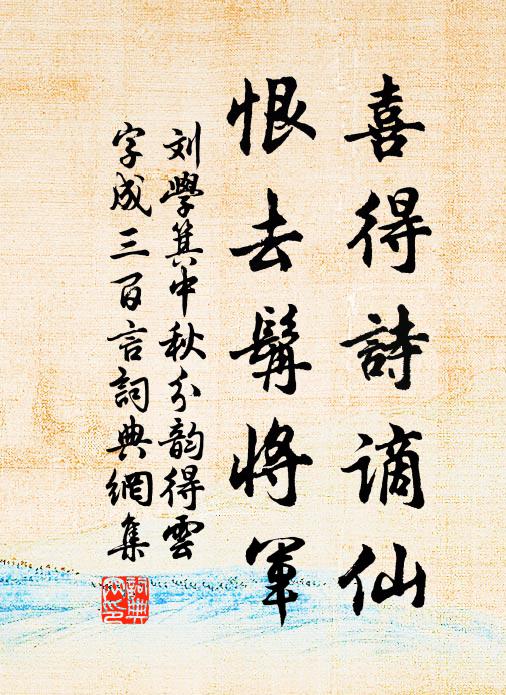 喜得詩謫仙
恨去髯將軍
刘學箕中秋分韵得雲
字成三百言詞典網集